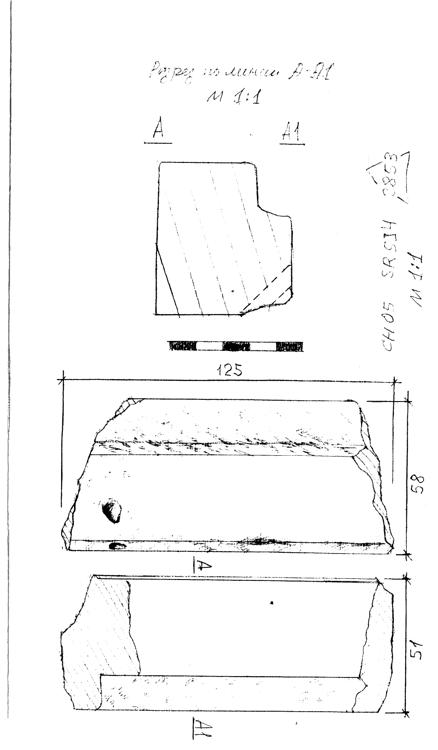 Разрез по линии А-А1
М 1:1
А
А1
CH05 SR SII4 2853
М 1:1
125
58
А
51
А1